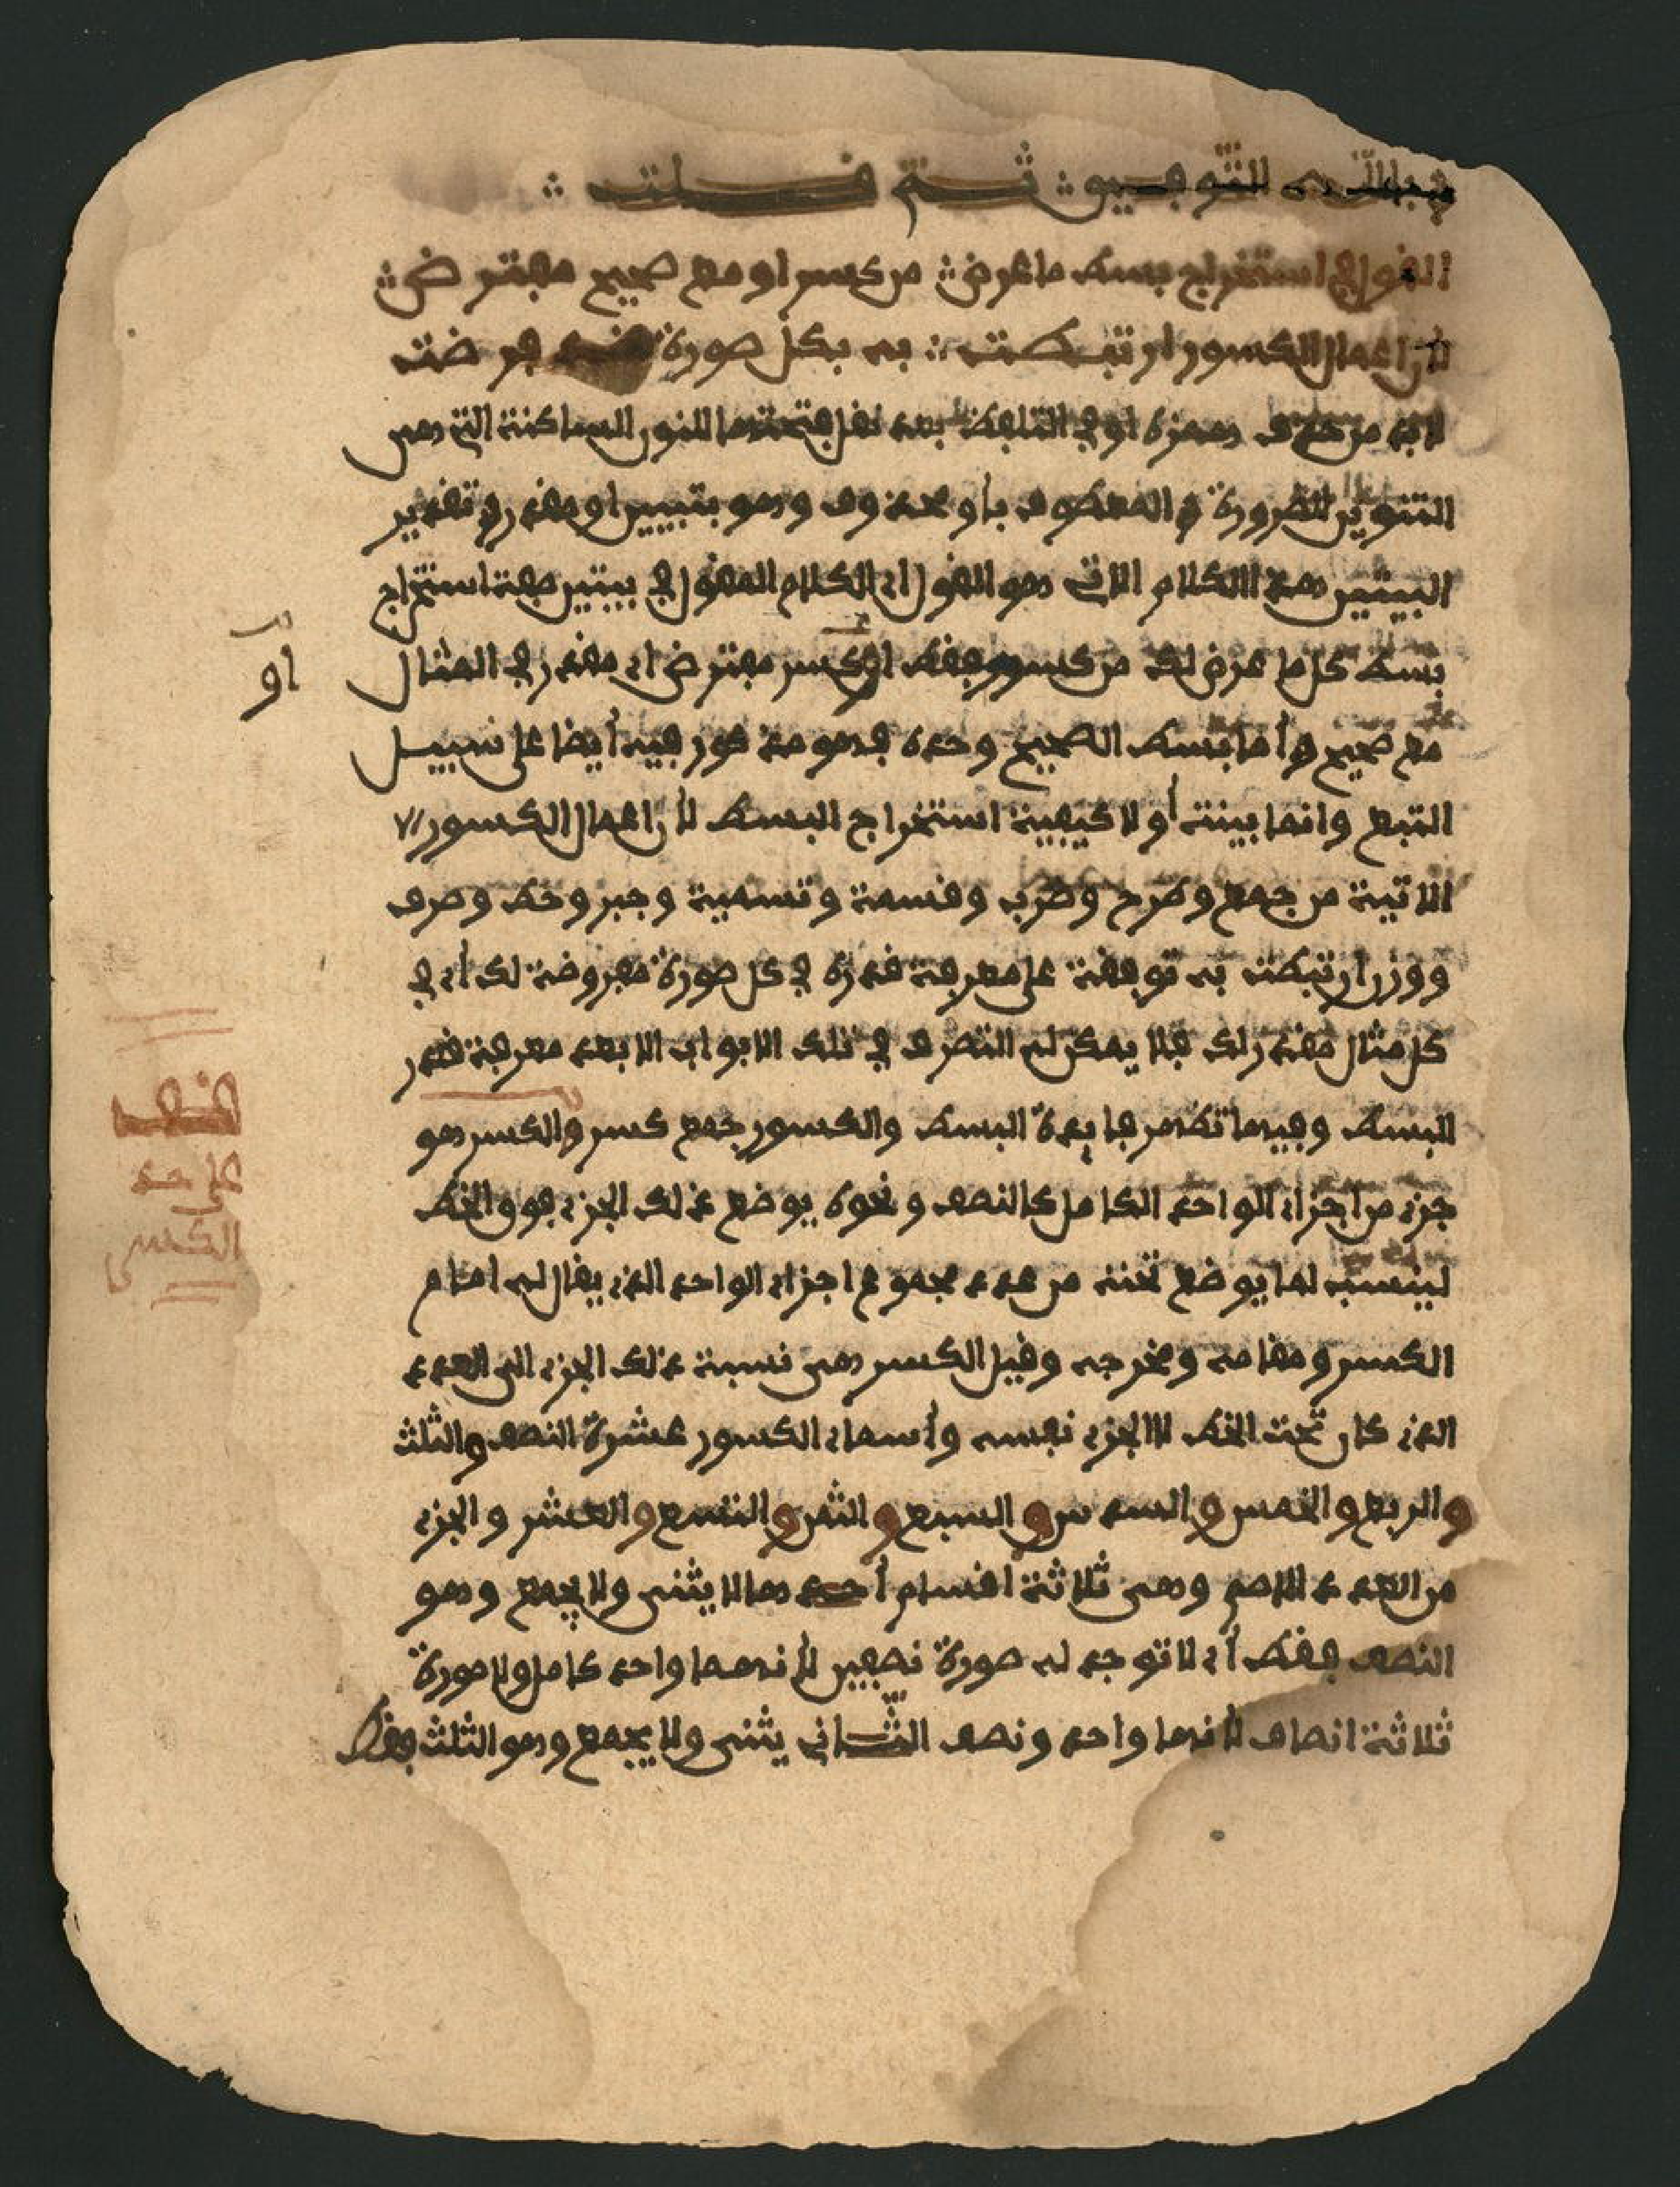 وبالله التوفيق ثم قلت
القول في استخراج بسط ما عرض من كسر او مع صحيح مفترض
لأن اعمال الكسور ارتبطت به بكل صورة قد فرضت
لابد من حذف همزة او في التلفظ بعد نقل فتحتها للنون الساكنة التي هي
التنوين للضرورة والمعطوف بأو محذوف وهو بتبيين او مقدر وتقدير
البيتين مع الكلام الاتي هو القول اي الكلام المقول في بيتين صفة استخراج
بسط كل ما عرض لك من كسر فقط او كسر مفترض اي مقدر في المثال
مع صحيح وأما بسط الصحيح وحده فهو مذكور فيه أيضا على سبيل
التبع وانما بينت أولا كيفية استخراج البسط لأن اعمال الكسور
الاتية من جمع وطرح وضرب وقسمة وتسمية وجبر وحط وصرف
ووزن ارتبطت به توقفت على معرفة قدره في كل صورة مفروضة لك أي في
كل مثال مقدر لك فلا يمكن له التصرف في تلك الابواب الا بعد معرفة قدر
البسط وفيها تظهر فايدة البسط والكسور جمع كسر والكسر هو
جزء من اجزاء الواحد الكامل كالنصف ونحوه يوضع ذلك الجزء فوق الخط
لينسب لما يوضع تحته من عدد مجموع اجزاء الواحد الذي يقال له امام
الكسر ومقامه ومخرجه وقيل الكسر هي نسبة ذلك الجزء الى العدد
الذي كان تحت الخط لا الجزء نفسه وأسماء الكسور عشرة النصف والثلث
والربع والخمس والسدس والسبع والثمن والتسع والعشر والجزء
من العدد الاصم وهي ثلاثة اقسام أحدها لا يثنى ولا يجمع وهو
النصف فقط أي لا توجد له صورة نصفين لأنهما واحد كامل ولا صورة
ثلاثة انصاف لأنها واحد ونصف الثاني يثنى ولا يجمع وهو الثلث فقط
او
قف
على حد
الكسر